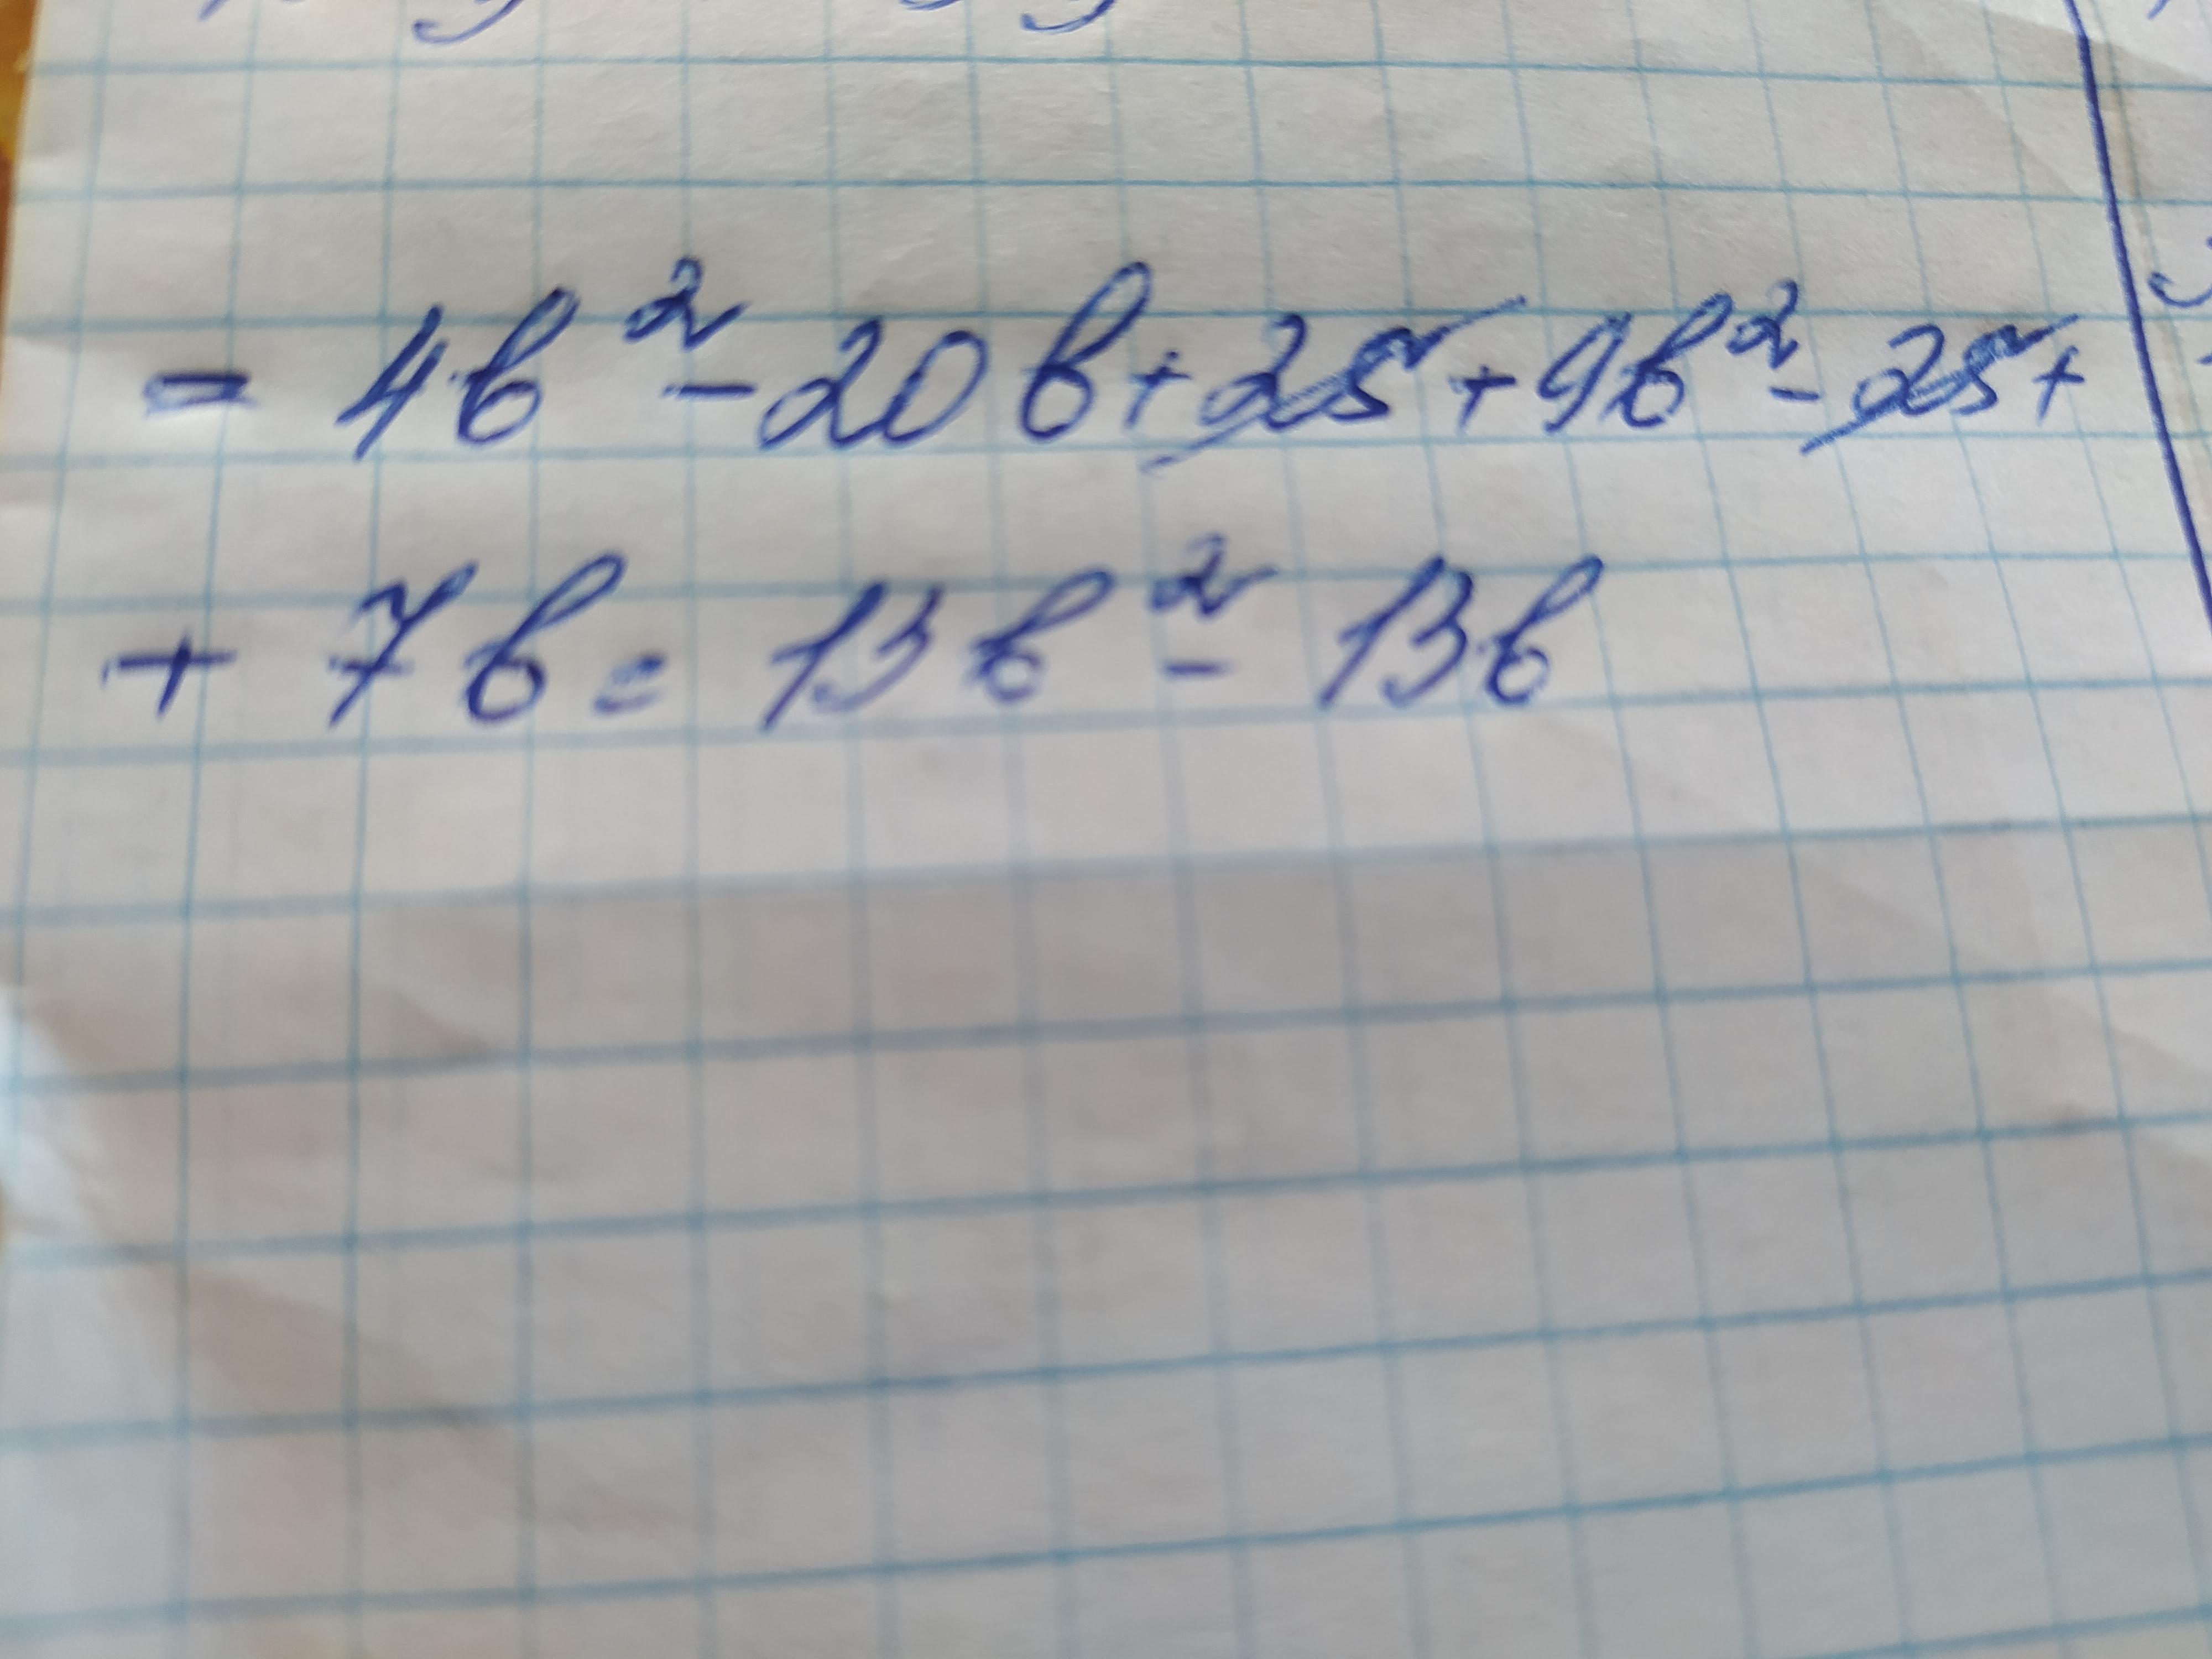 = 4b² - 20b + 25 + 9b² - 25 +
+ 7b = 13b² - 13b